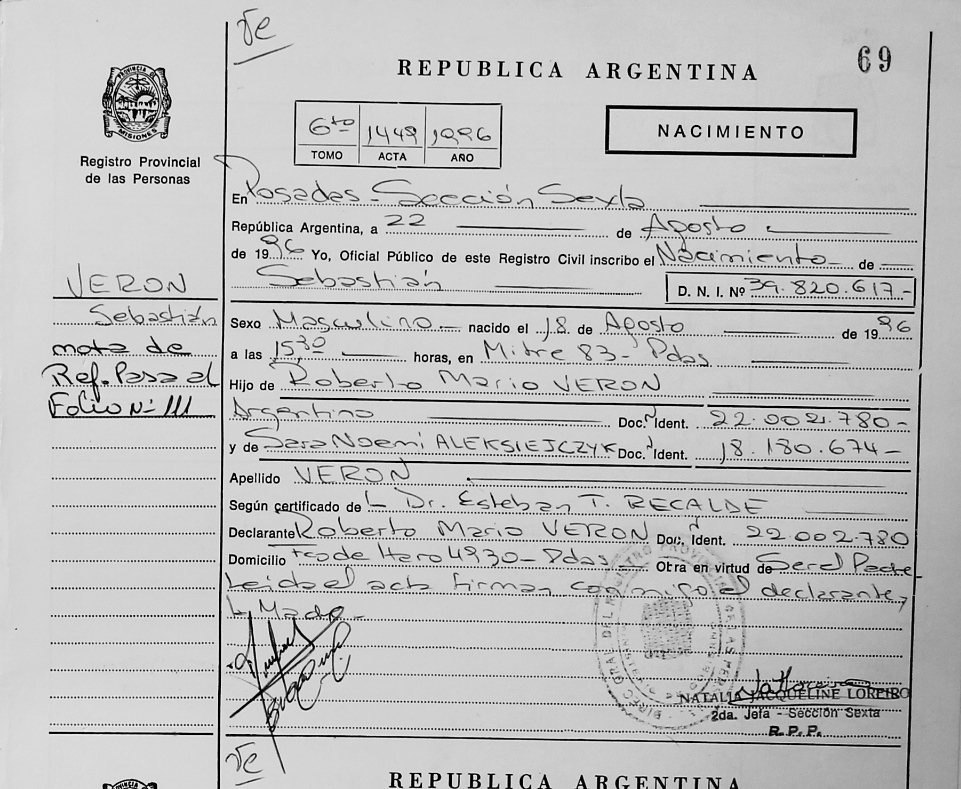 Ve
REPUBLICA ARGENTINA
69
PROVINCIA DE MISIONES
Registro Provincial
de las Personas
6to 1449 1996
TOMO ACTA AÑO
NACIMIENTO
En Posadas - Sección Sexta
República Argentina, a 22 de Agosto
de 1996 Yo, Oficial Público de este Registro Civil inscribo el Nacimiento de
Sebastián D. N. I. Nº 39.820.617-
Sexo Masculino nacido el 18 de Agosto de 1996
a las 15,30 horas, en Mitre 83- Pdas
Hijo de Roberto Mario VERON
Argentino Doc. Ident. 22.002.780-
y de Sara Noemi ALEKSIEJCZYK Doc. Ident. 18.180.674-
Apellido VERON
Según certificado de Dr. Esteban T. RECALDE
Declarante Roberto Mario VERON Doc, Ident. 22.002.780
Domicilio Haro 4930- Pdas Otra en virtud de Ser el Padre
Leida el acta firman conmigo el declarante y
L Madre-
VERON
Sebastián
nota de
Ref. Pasa al
Folio Nº 111
NATALIA JACQUELINE LOREIRO
2da. Jefa - Sección Sexta
R. P. P.
Ve
REPUBLICA ARGENTINA
PROVINCIA